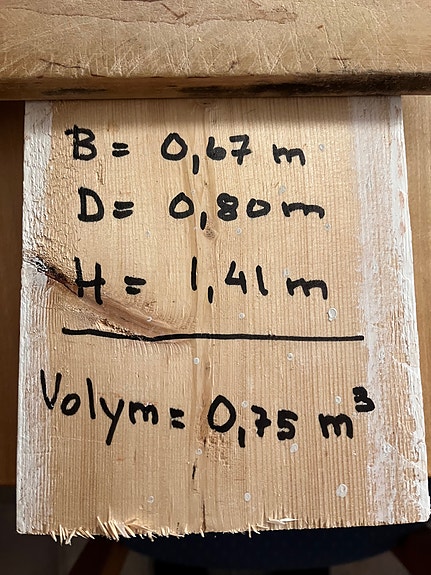 B = 0,67 m
D = 0,80 m
H = 1,41 m
Volym = 0,75 m³